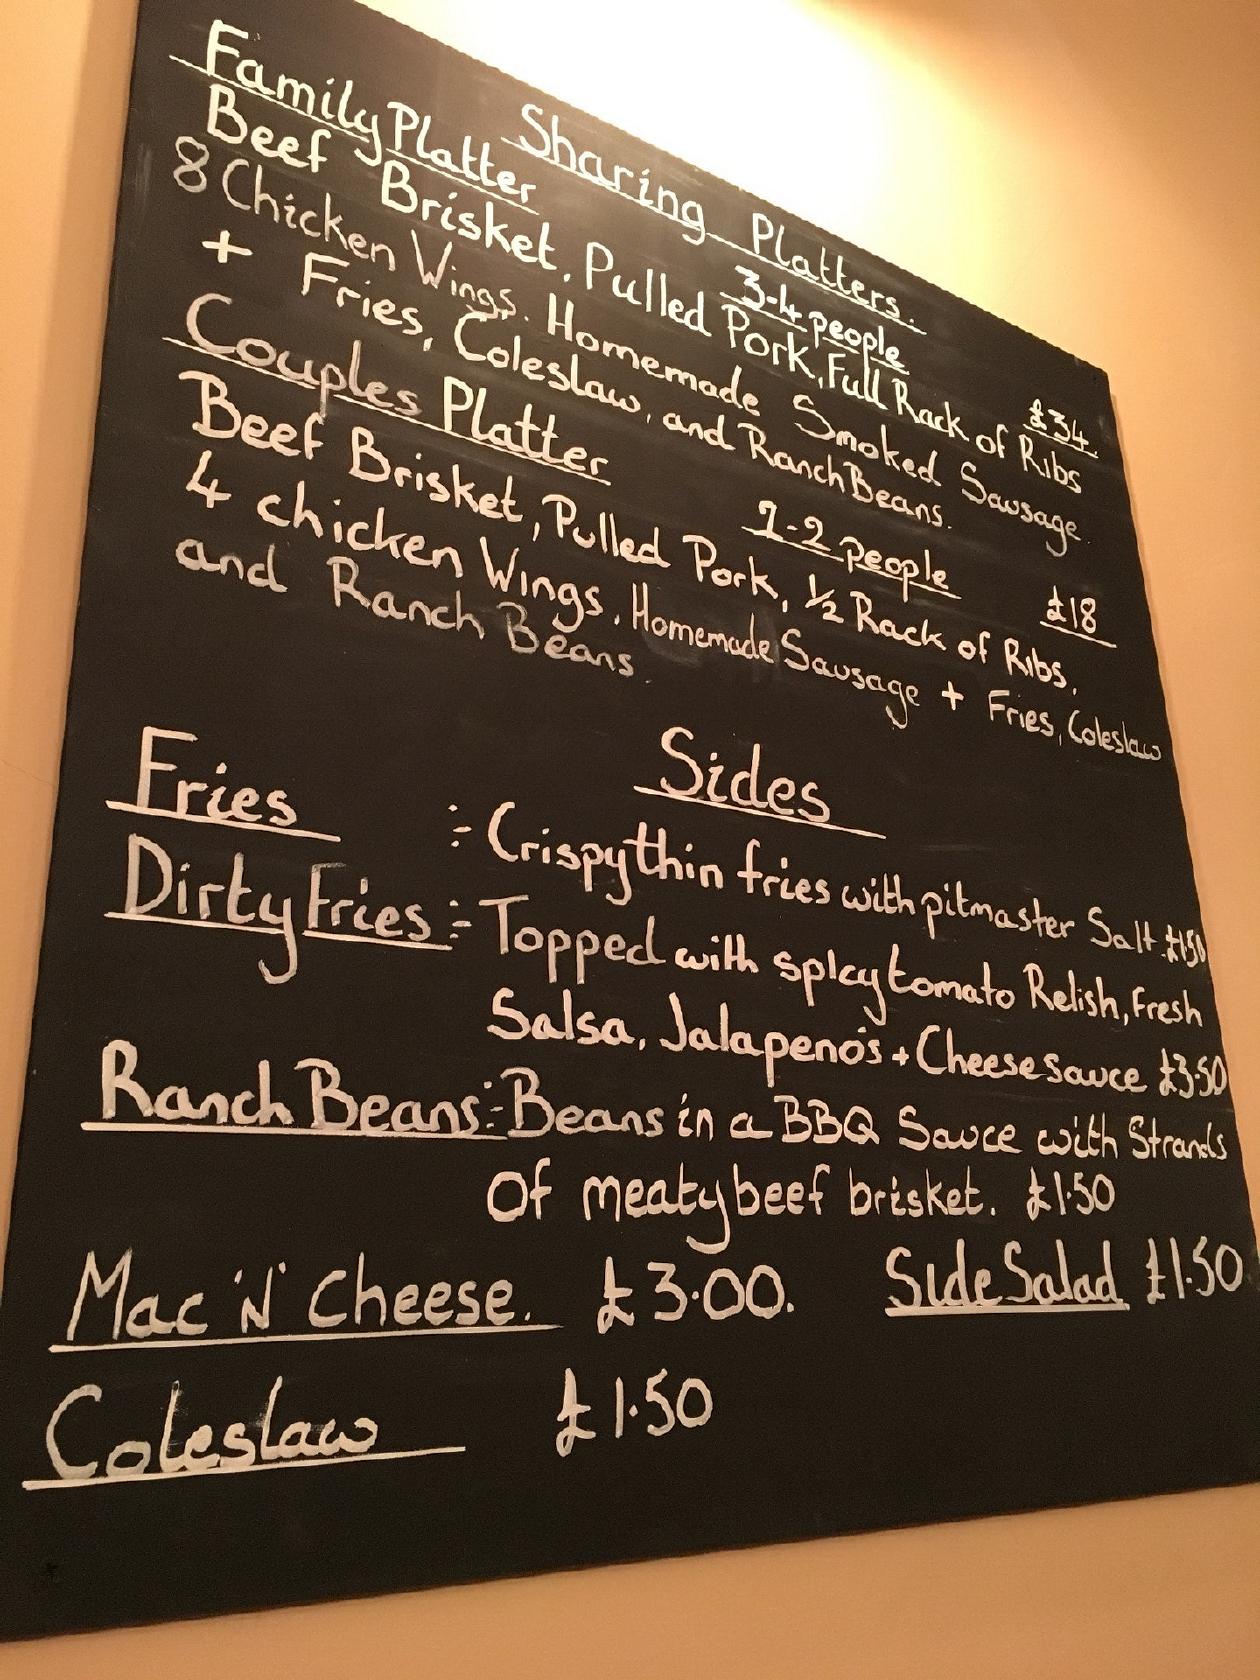 Sharing Platters.
Family Platter 3-4 people £34.
Beef Brisket, Pulled Pork, Full Rack of Ribs
8 Chicken Wings. Homemade Smoked Sausage
+ Fries, Coleslaw, and Ranch Beans.
Couples Platter 1-2 people £18
Beef Brisket, Pulled Pork, 1/2 Rack of Ribs,
4 chicken Wings, Homemade Sausage + Fries, Coleslaw
and Ranch Beans.
Sides
Fries :- Crispy thin fries with pitmaster Salt. £1.50
Dirty Fries :- Topped with spicy tomato Relish, Fresh
Salsa, Jalapeno's + Cheese sauce £3.50
Ranch Beans:- Beans in a BBQ Sauce with Strands
Of meaty beef brisket. £1.50
Mac 'N' Cheese. £3.00. Side Salad £1.50
Coleslaw £1.50